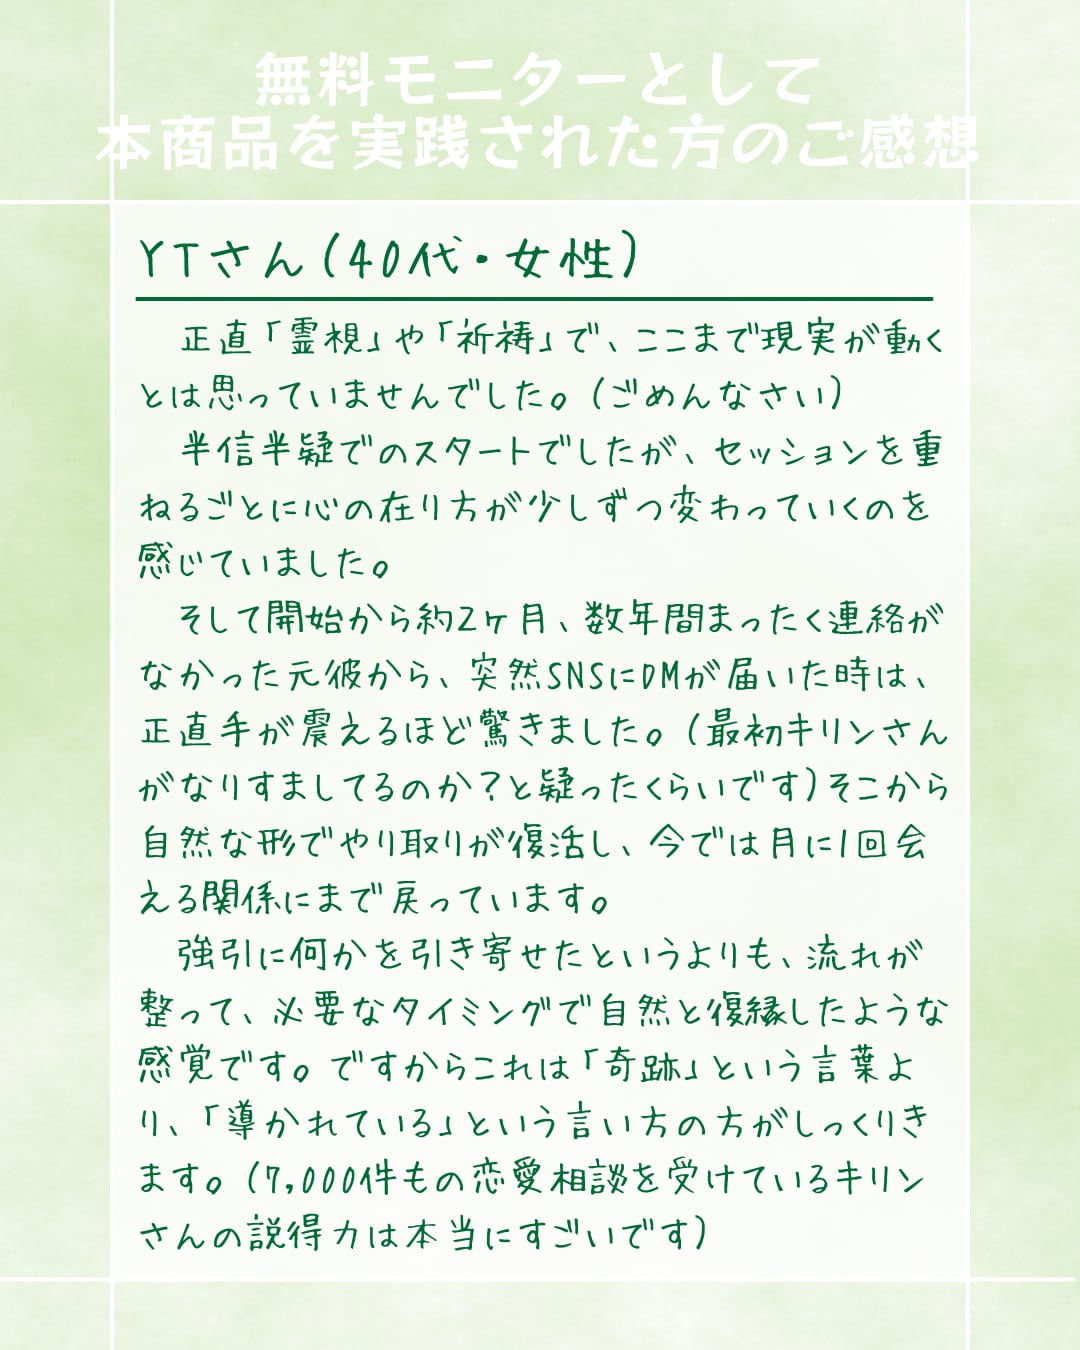 無料モニターとして
本商品を実践された方のご感想
YTさん(40代・女性)
正直「霊視」や「祈祷」で、ここまで現実が動く
とは思っていませんでした。(ごめんなさい)
半信半疑でのスタートでしたが、セッションを重
ねるごとに心の在り方が少しずつ変わっていくのを
感じていました。
そして開始から約2ヶ月、数年間まったく連絡が
なかった元彼から、突然SNSにDMが届いた時は、
正直手が震えるほど驚きました。(最初キリンさん
がなりすましてるのか?と疑ったくらいです)そこから
自然な形でやり取りが復活し、今では月に1回会
える関係にまで戻っています。
強引に何かを引き寄せたというよりも、流れが
整って、必要なタイミングで自然と復縁したような
感覚です。ですからこれは「奇跡」という言葉よ
り、「導かれている」という言い方の方がしっくりき
ます。(7,000件もの恋愛相談を受けているキリン
さんの説得力は本当にすごいです)